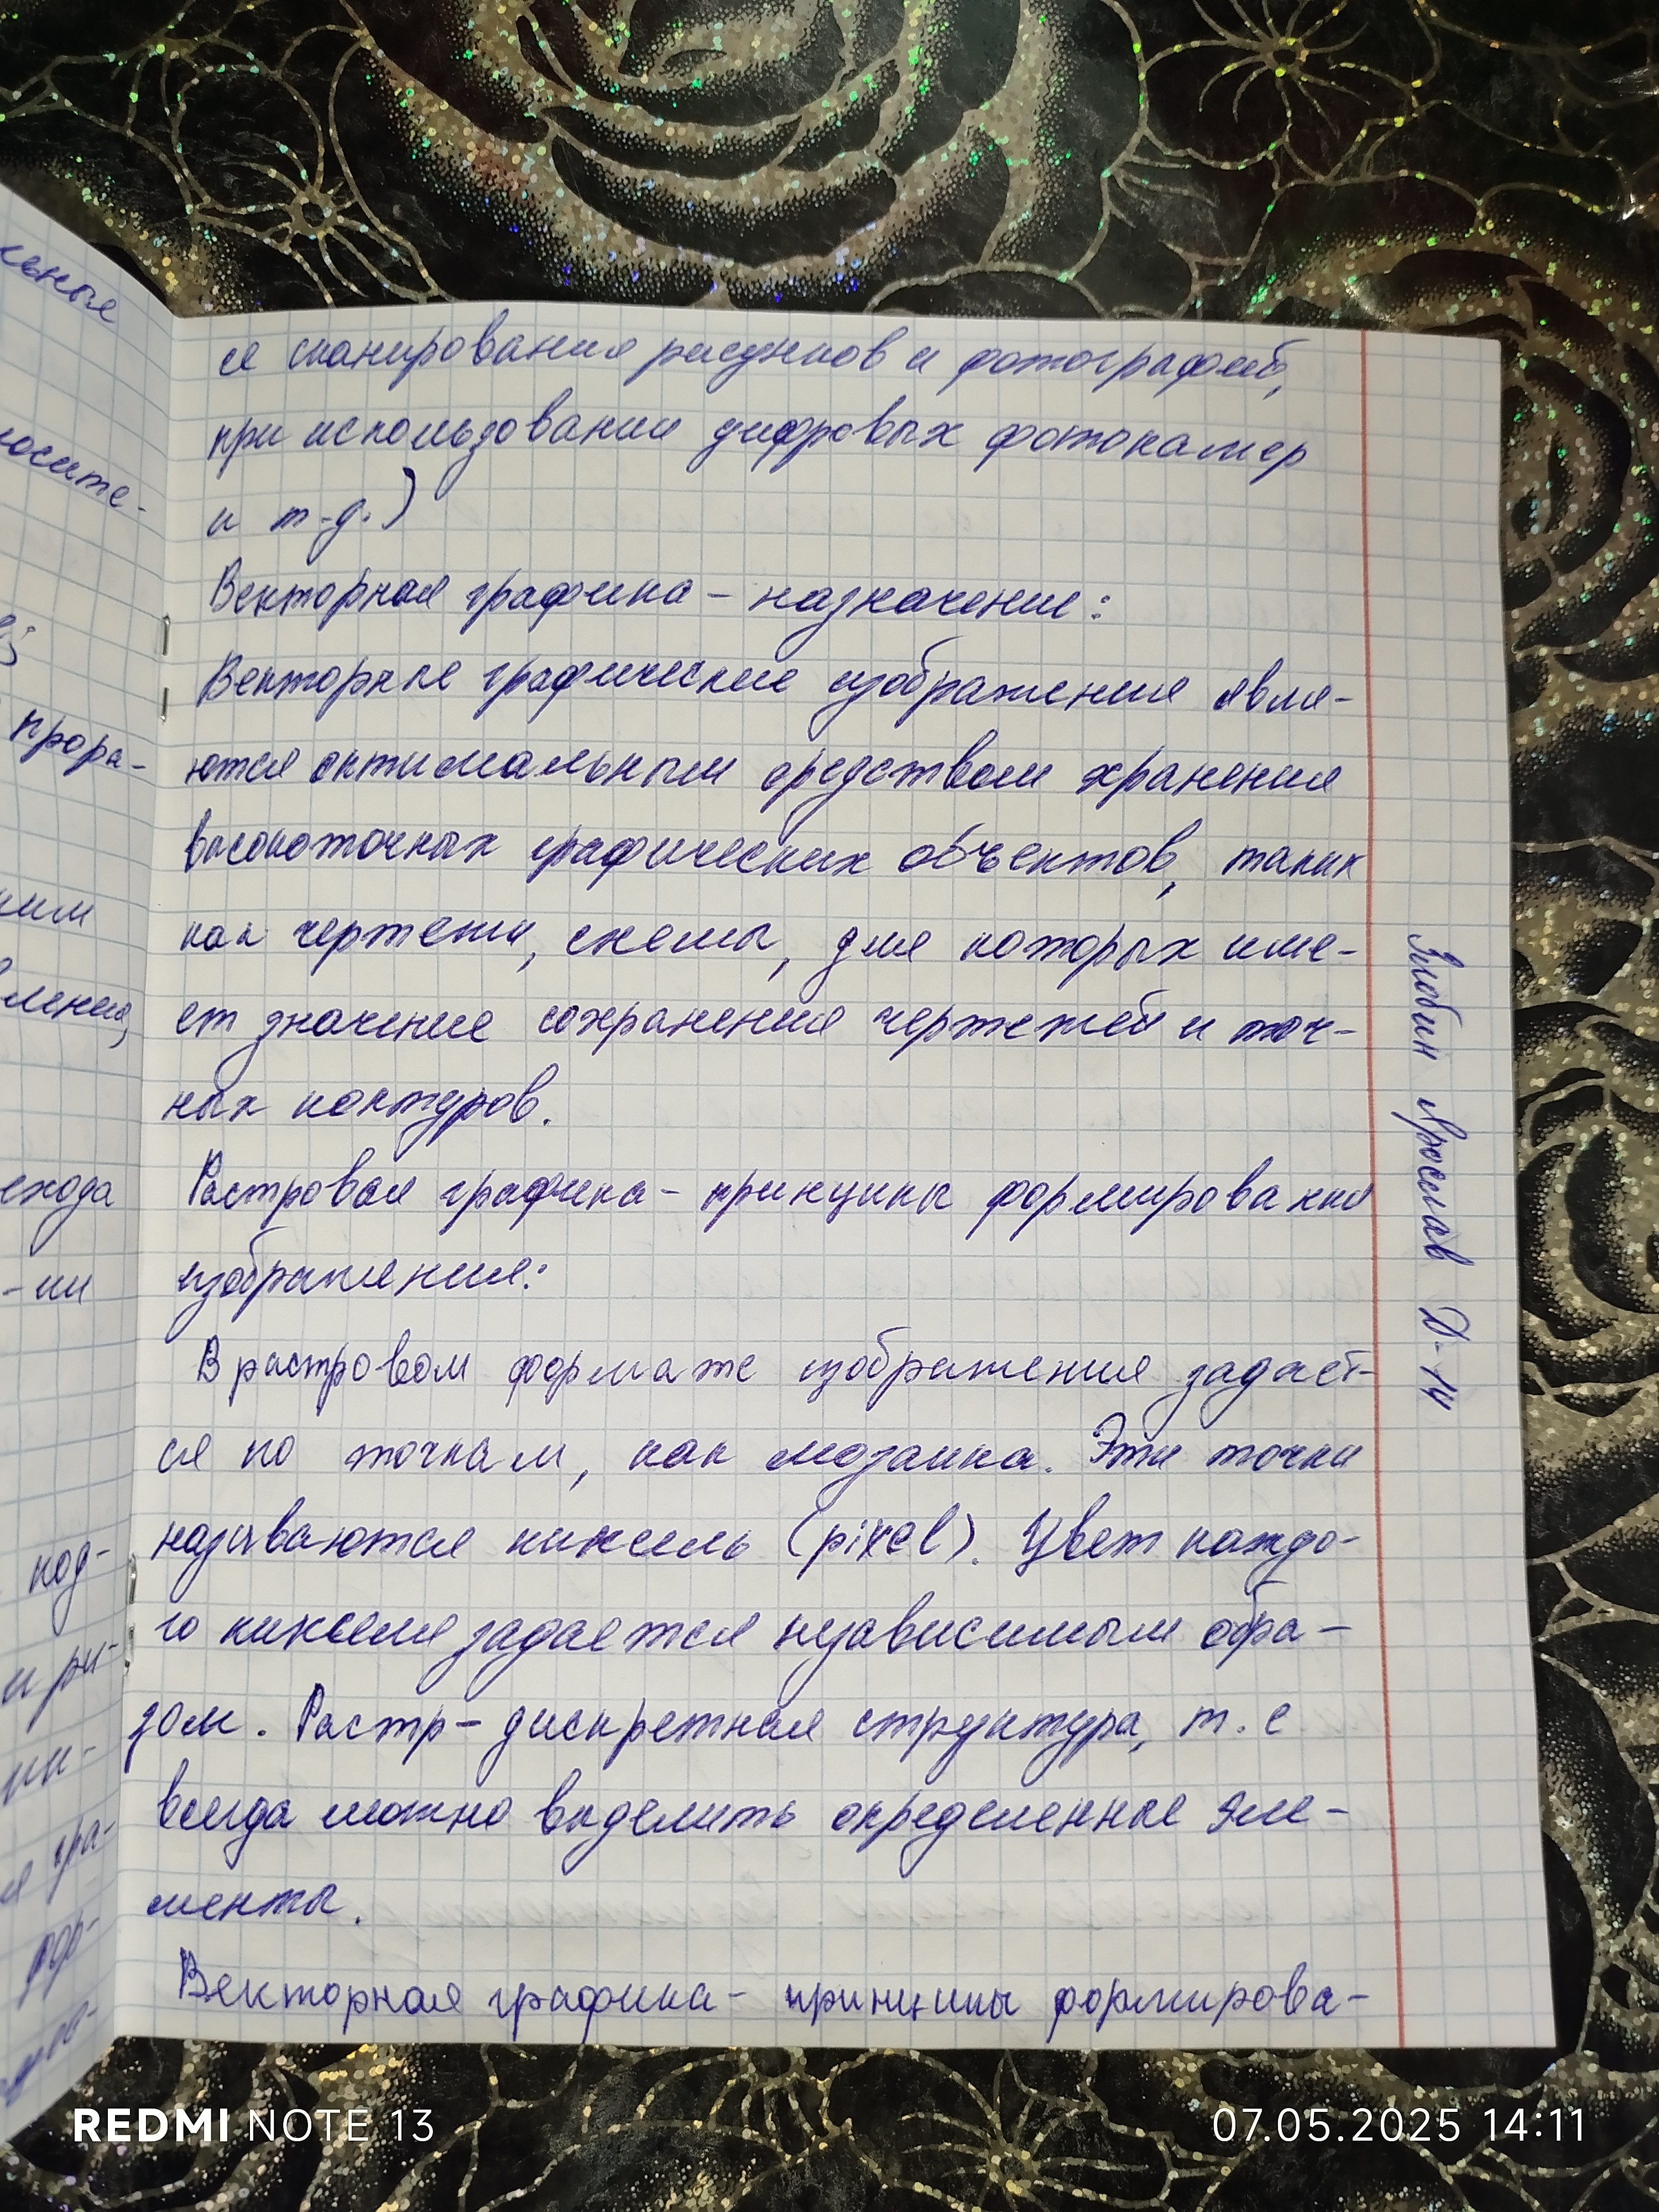 ся сканирования рисунков и фотографий,
при использовании цифровых фотокамер
и т-д.)
Векторная графика – назначение:
Векторные графические изображения явля-
ются оптимальным средством хранения
высокоточных графических объектов, таких
как чертежи, схемы, для которых име-
ет значение сохранения чертежей и точ-
ных контуров.
Растровая графика – принципы формирования
изображения:
В растровом формате изображения задаёт-
ся по точкам, как мозаика. Эти точки
называются пиксель (pixel). Цвет каждо-
го пикселя задается независимым обра-
зом. Растр – дискретная структура, т. е
всегда можно выделить определенные эле-
менты.
Векторная графика – принципы формирова-
Злобин Ярослав Д-14
носите-
прора-
ления,
ехода
-ии
код-
и ри-
ии-
гра-
фор-
REDMI NOTE 13
07.05.2025 14:11